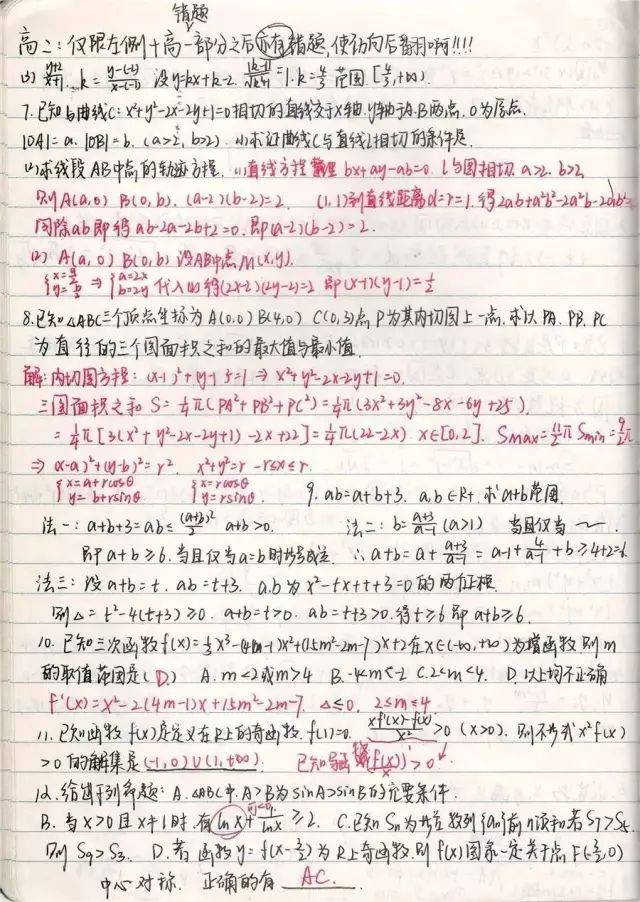 错题
高二：仅限左侧+高一部分之后亦有错题,使劲向后翻啊!!!!
(3) (y+2)/(x+1). k=(y-(-2))/(x-(-1)) 设y=kx+k-2. |k-11|/√(k²+1)=1. k=4/3 范围.[4/3,+∞).
7.已知与曲线C:x²+y²-2x-2y+1=0相切的直线交于x轴.y轴于A.B两点.O为原点.
|OA|=a. |OB|=b. (a>2, b>2). (1)求证曲线C与直线l相切的条件是.
(2)求线段AB中点的轨迹方程. (1)直线方程 bx+ay-ab=0. l与圆相切. a>2. b>2.
则A(a,0) B(0,b). (a-2)(b-2)=2. (1,1)到直线距离d=r=1.得2ab+a²b²-2a²b-2ab²=0
同除ab即得ab-2a-2b+2=0.即(a-2)(b-2)=2.
(2) A(a,0) B(0,b) 设AB中点M(x,y).
{x=a/2 y=b/2 ⇒ {a=2x b=2y 代入(1)得(2x-2)(2y-2)=2 即(x-1)(y-1)=1/2
8.已知△ABC三个顶点坐标为A(0,0) B(4,0) C(0,3)点P为其内切圆上一点.求以PA.PB.PC
为直径的三个圆面积之和的最大值与最小值.
解:内切圆方程: (x-1)²+(y-1)²=1 ⇒ x²+y²-2x-2y+1=0.
三圆面积之和 S=1/4π(PA²+PB²+PC²)=1/4π(3x²+3y²-8x-6y+25).
=1/4π[3(x²+y²-2x-2y+1)-2x+22]=1/4π(22-2x) x∈[0,2]. Smax=11/2π Smin=9/2π
⇒ (x-a)²+(y-b)²=r². x²+y²=r -r≤x≤r.
{x=a+rcosθ y=b+rsinθ {x=rcosθ y=rsinθ. 9. ab=a+b+3. a.b∈R+.求a+b范围.
法一: a+b+3=ab≤(a+b)²/2 a+b>0. 法二: b=(a+3)/(a-1) (a>1) 当且仅当 ~.
即a+b≥6.当且仅当a=b时等号成立. ∴a+b=a+(a+3)/(a-1)=a-1+4/(a-1)+b≥4+2=6.
法三:设a+b=t. ab=t+3. a.b为x²-tx+t+3=0的两个根.
则△=t²-4(t+3)≥0. a+b=t>0. ab=t+3>0.得t≥6即a+b≥6.
10.已知三次函数f(x)=1/3x³-(4m-1)x²+(15m²-2m-7)x+2在x∈(-∞,+∞)为增函数则m
的取值范围是(D) A.m<2或m>4 B.-4<m<-2 C.2<m<4. D.以上均不正确
f'(x)=x²-2(4m-1)x+15m²-2m-7. △≤0. 2≤m≤4
11.已知函数f(x)是定义在R上的奇函数.f(1)=0. (xf'(x)-f(x))/x²>0 (x>0).则不等式x²f(x)
>0的解集是(-1,0)∪(1,+∞). 已知导函数(f(x)/x)'>0
12.给出下列命题: A.△ABC中.A>B为sinA>sinB的充要条件.
B.当x>0且x≠1时.有lnx+1/lnx≥2. 可<0. C.已知Sn为等差数列{an}前n项和若S7>S5.
则S9>S3. D.若函数y=f(x-3/2)为R上奇函数.则f(x)图象一定关于点F(3/2,0)
中心对称. 正确的有 AC.